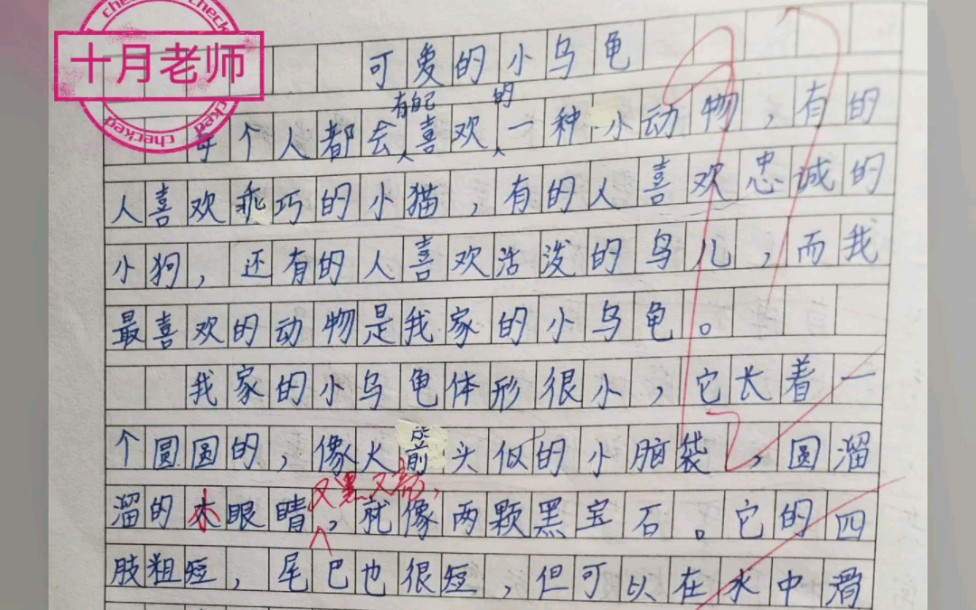 十月老师
checked
checked
可爱的小乌龟
有自己 的
每个人都会喜欢一种小动物，有的
人喜欢乖巧的小猫，有的人喜欢忠诚的
小狗，还有的人喜欢活泼的鸟儿，而我
最喜欢的动物是我家的小乌龟。
我家的小乌龟体形很小，它长着一
个圆圆的，像火箭头似的小脑袋，圆溜
又黑又亮，
溜的小眼睛，就像两颗黑宝石。它的四
肢粗短，尾巴也很短，但可以在水中滑